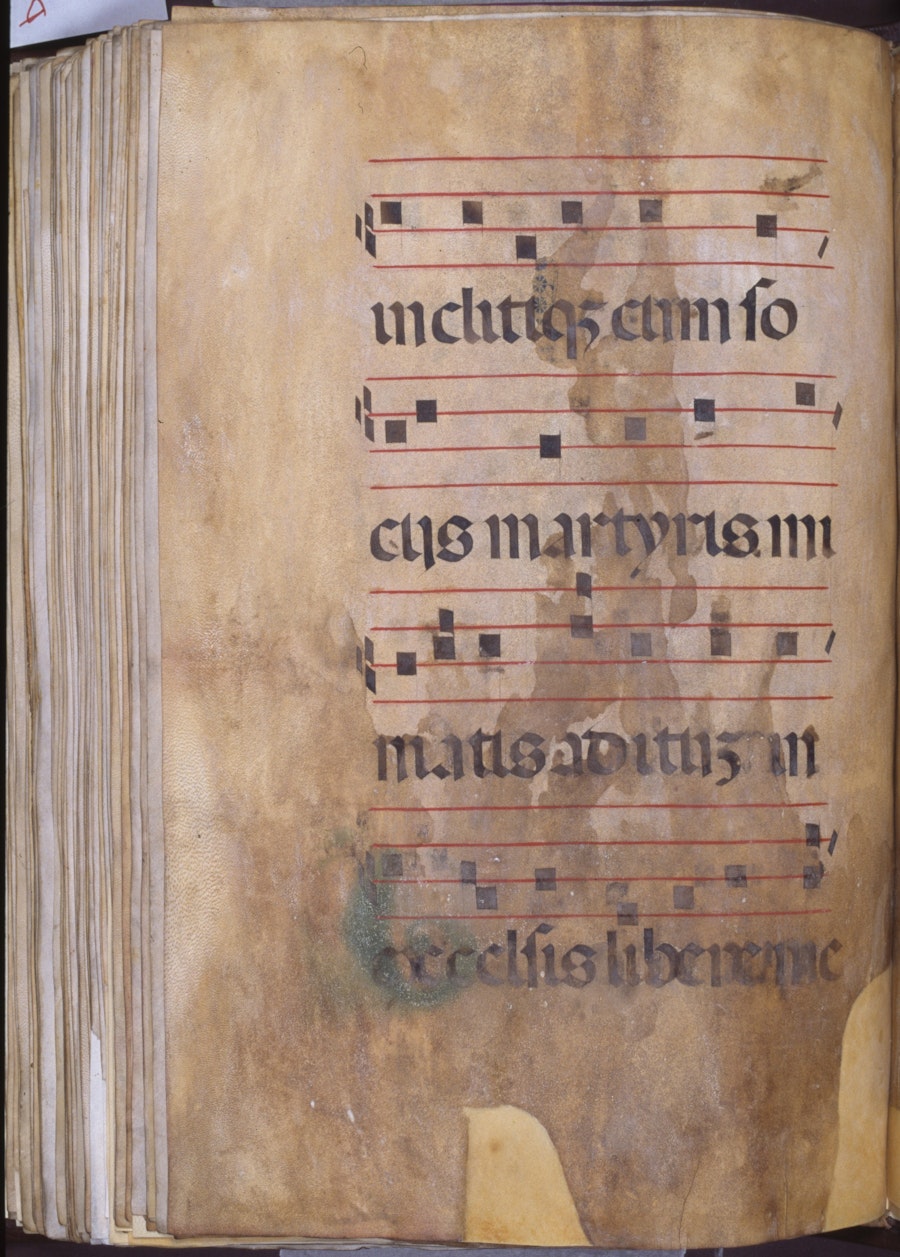 inclitiqꝫ cum so
cijs martyris mi
niatis adituꝫ in
excelsis libere me